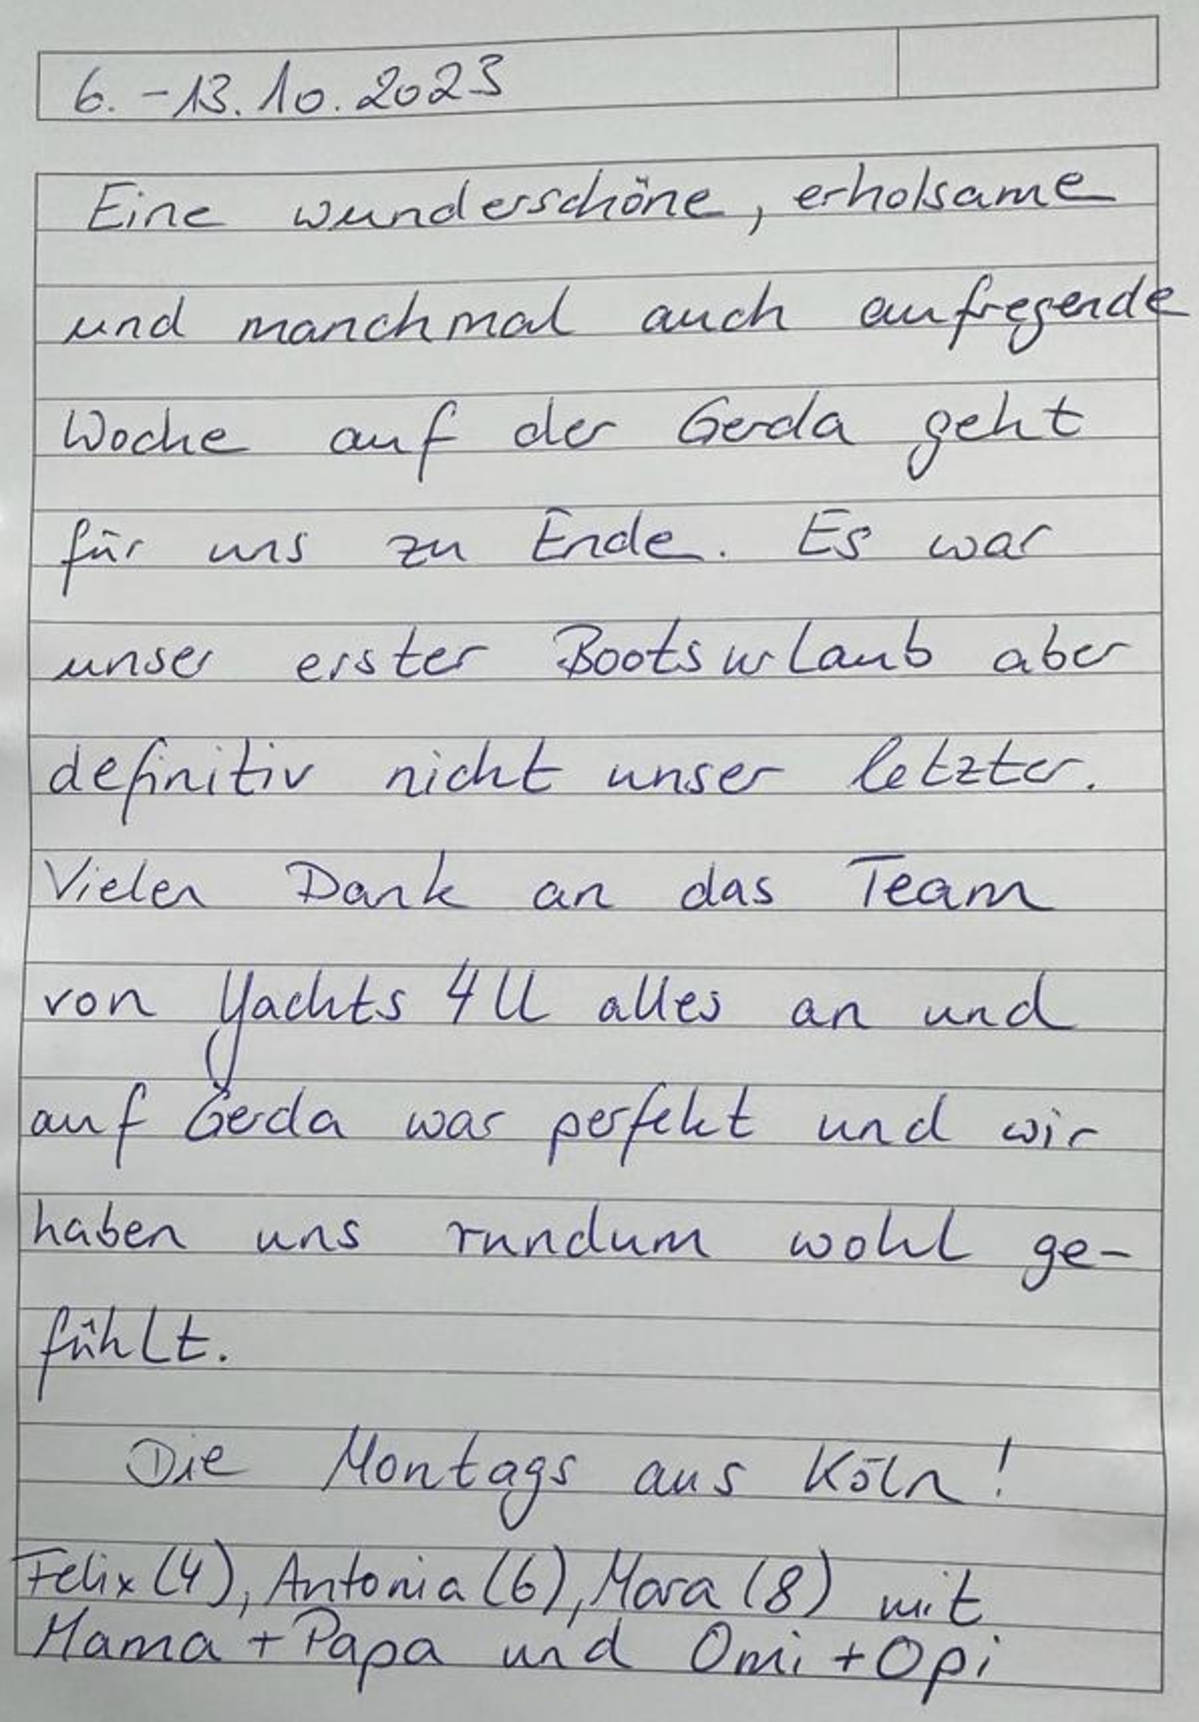 6. - 13. 10. 2023
Eine wunderschöne, erholsame
und manchmal auch aufregende
Woche auf der Gerda geht
für uns zu Ende. Es war
unser erster Bootsurlaub aber
definitiv nicht unser letzter.
Vielen Dank an das Team
von Yachts 4U alles an und
auf Gerda war perfekt und wir
haben uns rundum wohl ge-
fühlt.
Die Montags aus Köln!
Felix (4), Antonia (6), Mara (8) mit
Mama + Papa und Omi + Opi